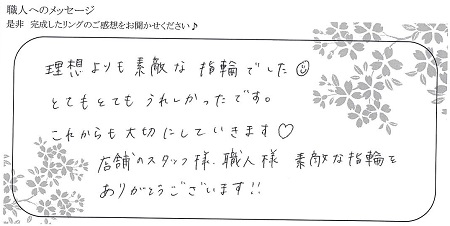 職人へのメッセージ
是非 完成したリングのご感想をお聞かせください♪
理想よりも素敵な指輪でした☺
とてもとてもうれしかったです。
これからも大切にしていきます♡
店舗のスタッフ様、職人様 素敵な指輪を
ありがとうございます!!